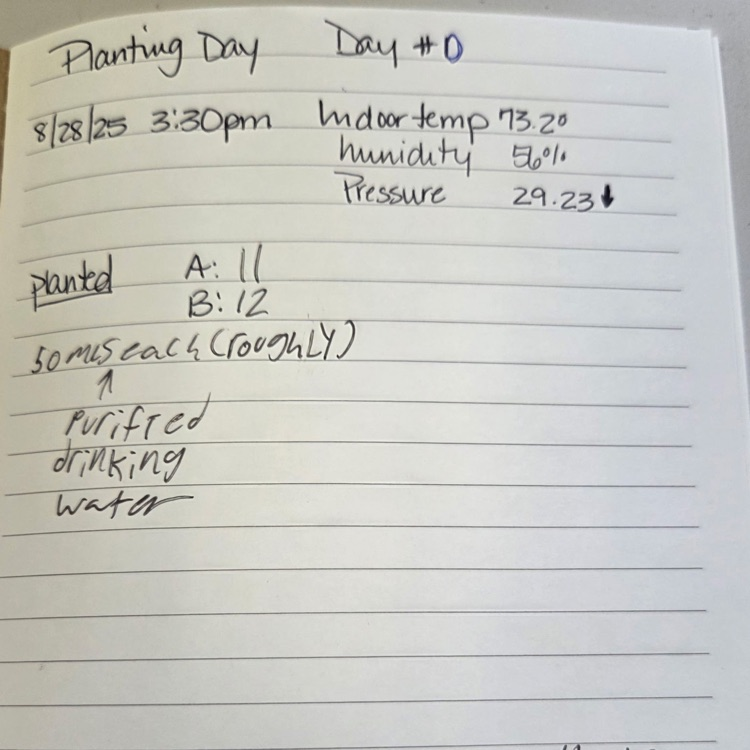 Planting Day Day #0
8/28/25 3:30pm Indoor temp 73.2°
humidity 56%
Pressure 29.23↓
planted A: 11
B: 12
50 mLs each (roughLy)
↑
Purified
drinking
water